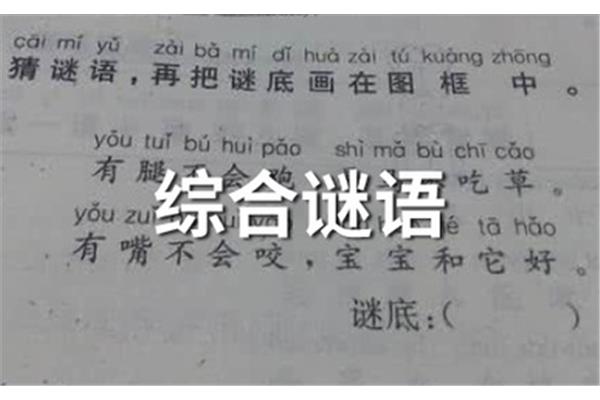 cāi mí yǔ zài bǎ mí dǐ huà zài tú kuàng zhōng
猜谜语，再把谜底画在图框中。
yǒu tuǐ bú huì pǎo shì mǎ bù chī cǎo
有腿不会 吃草。
综合谜语
yǒu tā hǎo
有嘴不会咬，宝宝和它好。
谜底：（ ）